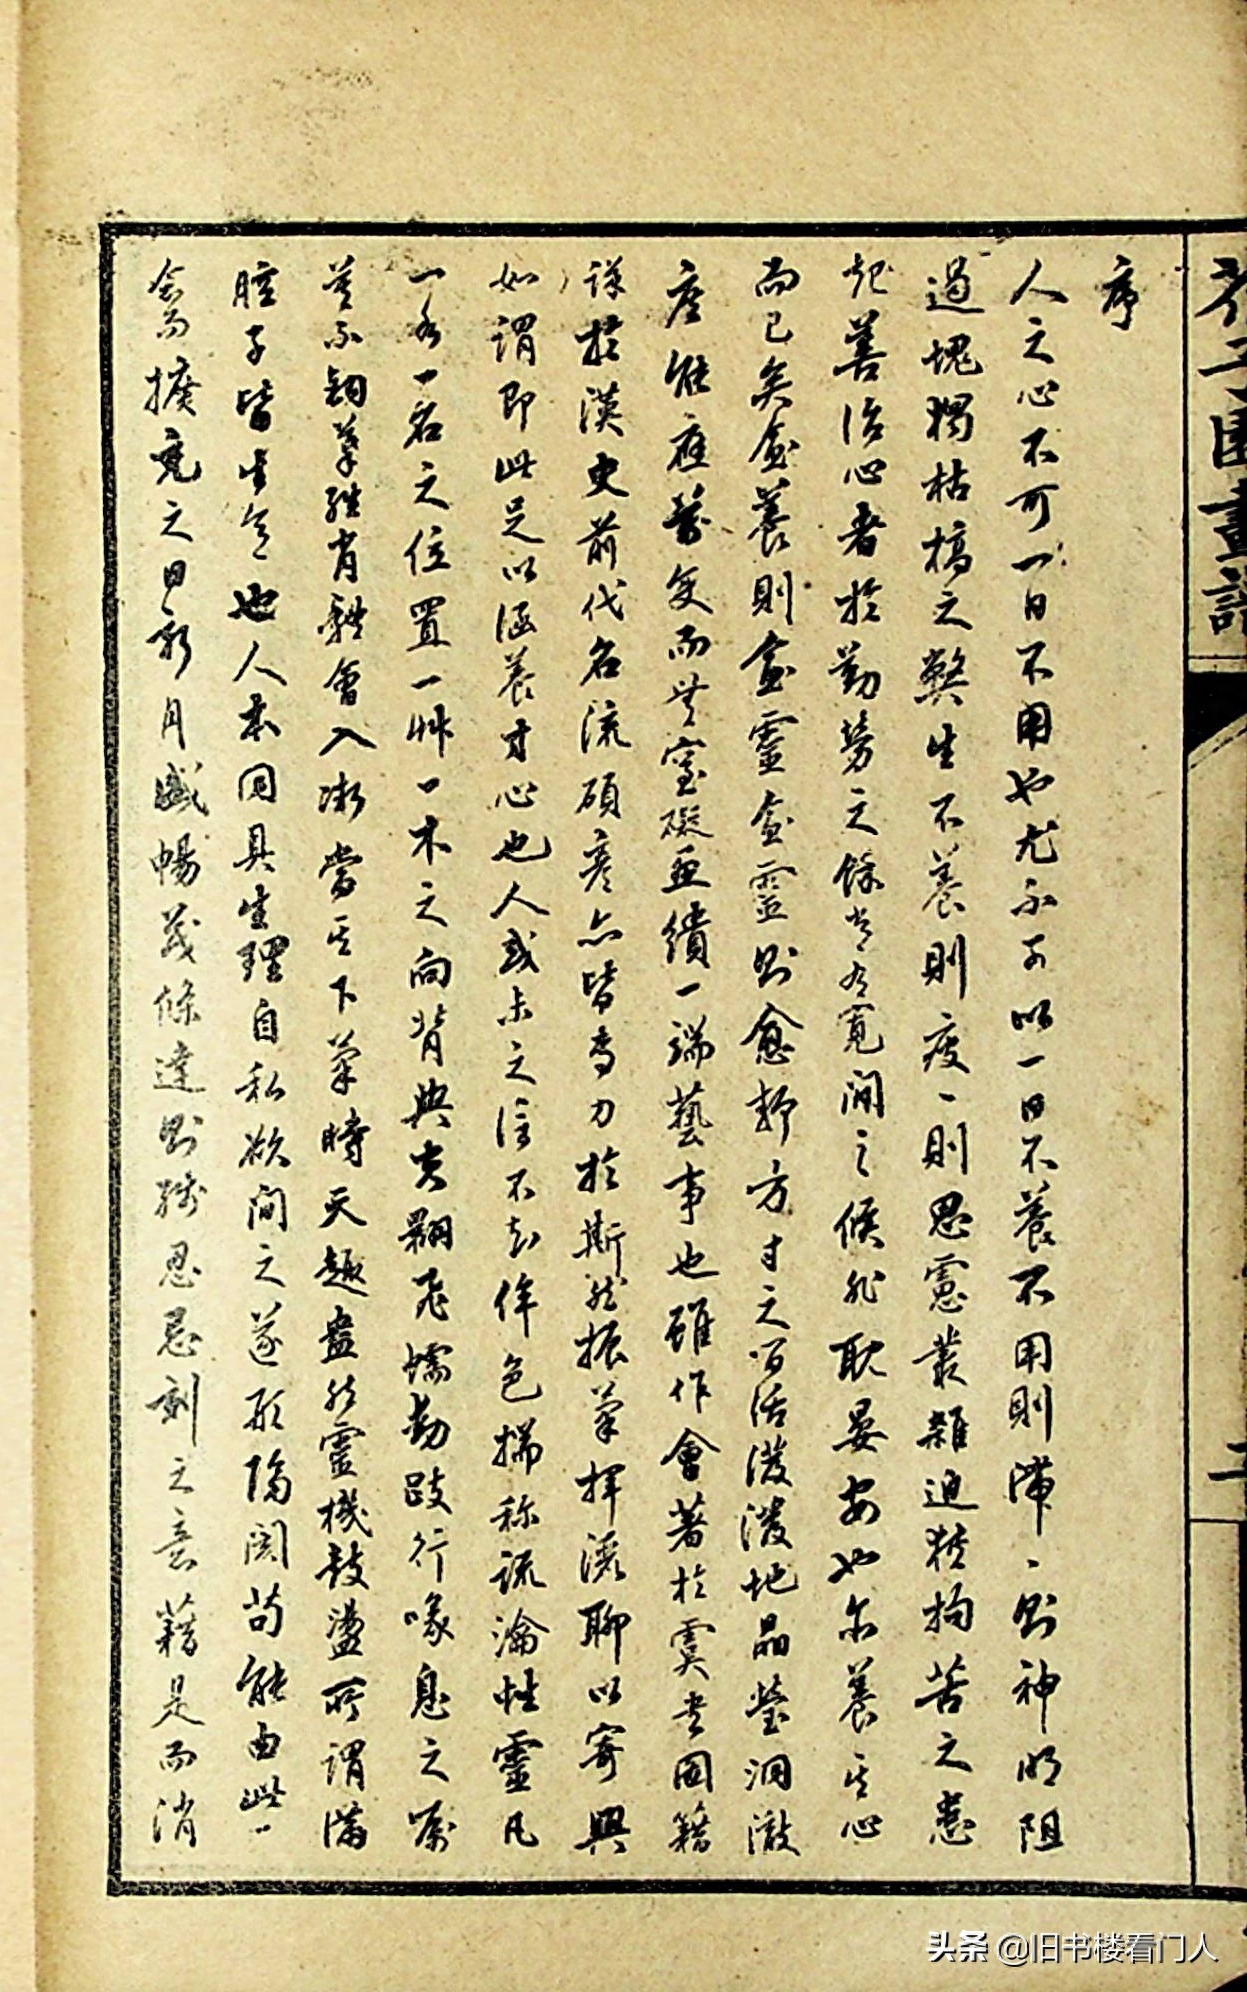 芥子園畫譜
二
序
人之心不可一日不用也尤不可以一日不養不用則滯、則神明阻
遏塊獨枯槁之弊生不養則疲、則思慮叢雜迫狹拘苦之患
起善治心者於勤勞之餘嘗有寬閒之候非耽晏安也亦養其心
而已矣愈養則愈靈愈靈則愈靜方寸之間活潑潑地晶瑩洞澈
在能應萬變而無窒礙亚繢一端藝事也雖作會著於虞書圖籍
詳於漢史前代名流碩彥亦皆專力於斯然振筆揮灑聊以寄興
如謂即此足以涵養寸心也人或未之信不知侔色揣称疏瀹性靈凡
一水一石之位置一艸一木之向背與夫翾飛蠕動跂行喙息之屬
莫不鉤摹維肖體會入微當其下筆時天趣盎然靈機鼓盪所謂滿
腔子皆生意也人本同具生理自私欲間之遂形隔閡苟能由此一
念而擴充之日新月盛暢茂條達則殘忍忌刻之意藉是而消
头条 @旧书楼看门人